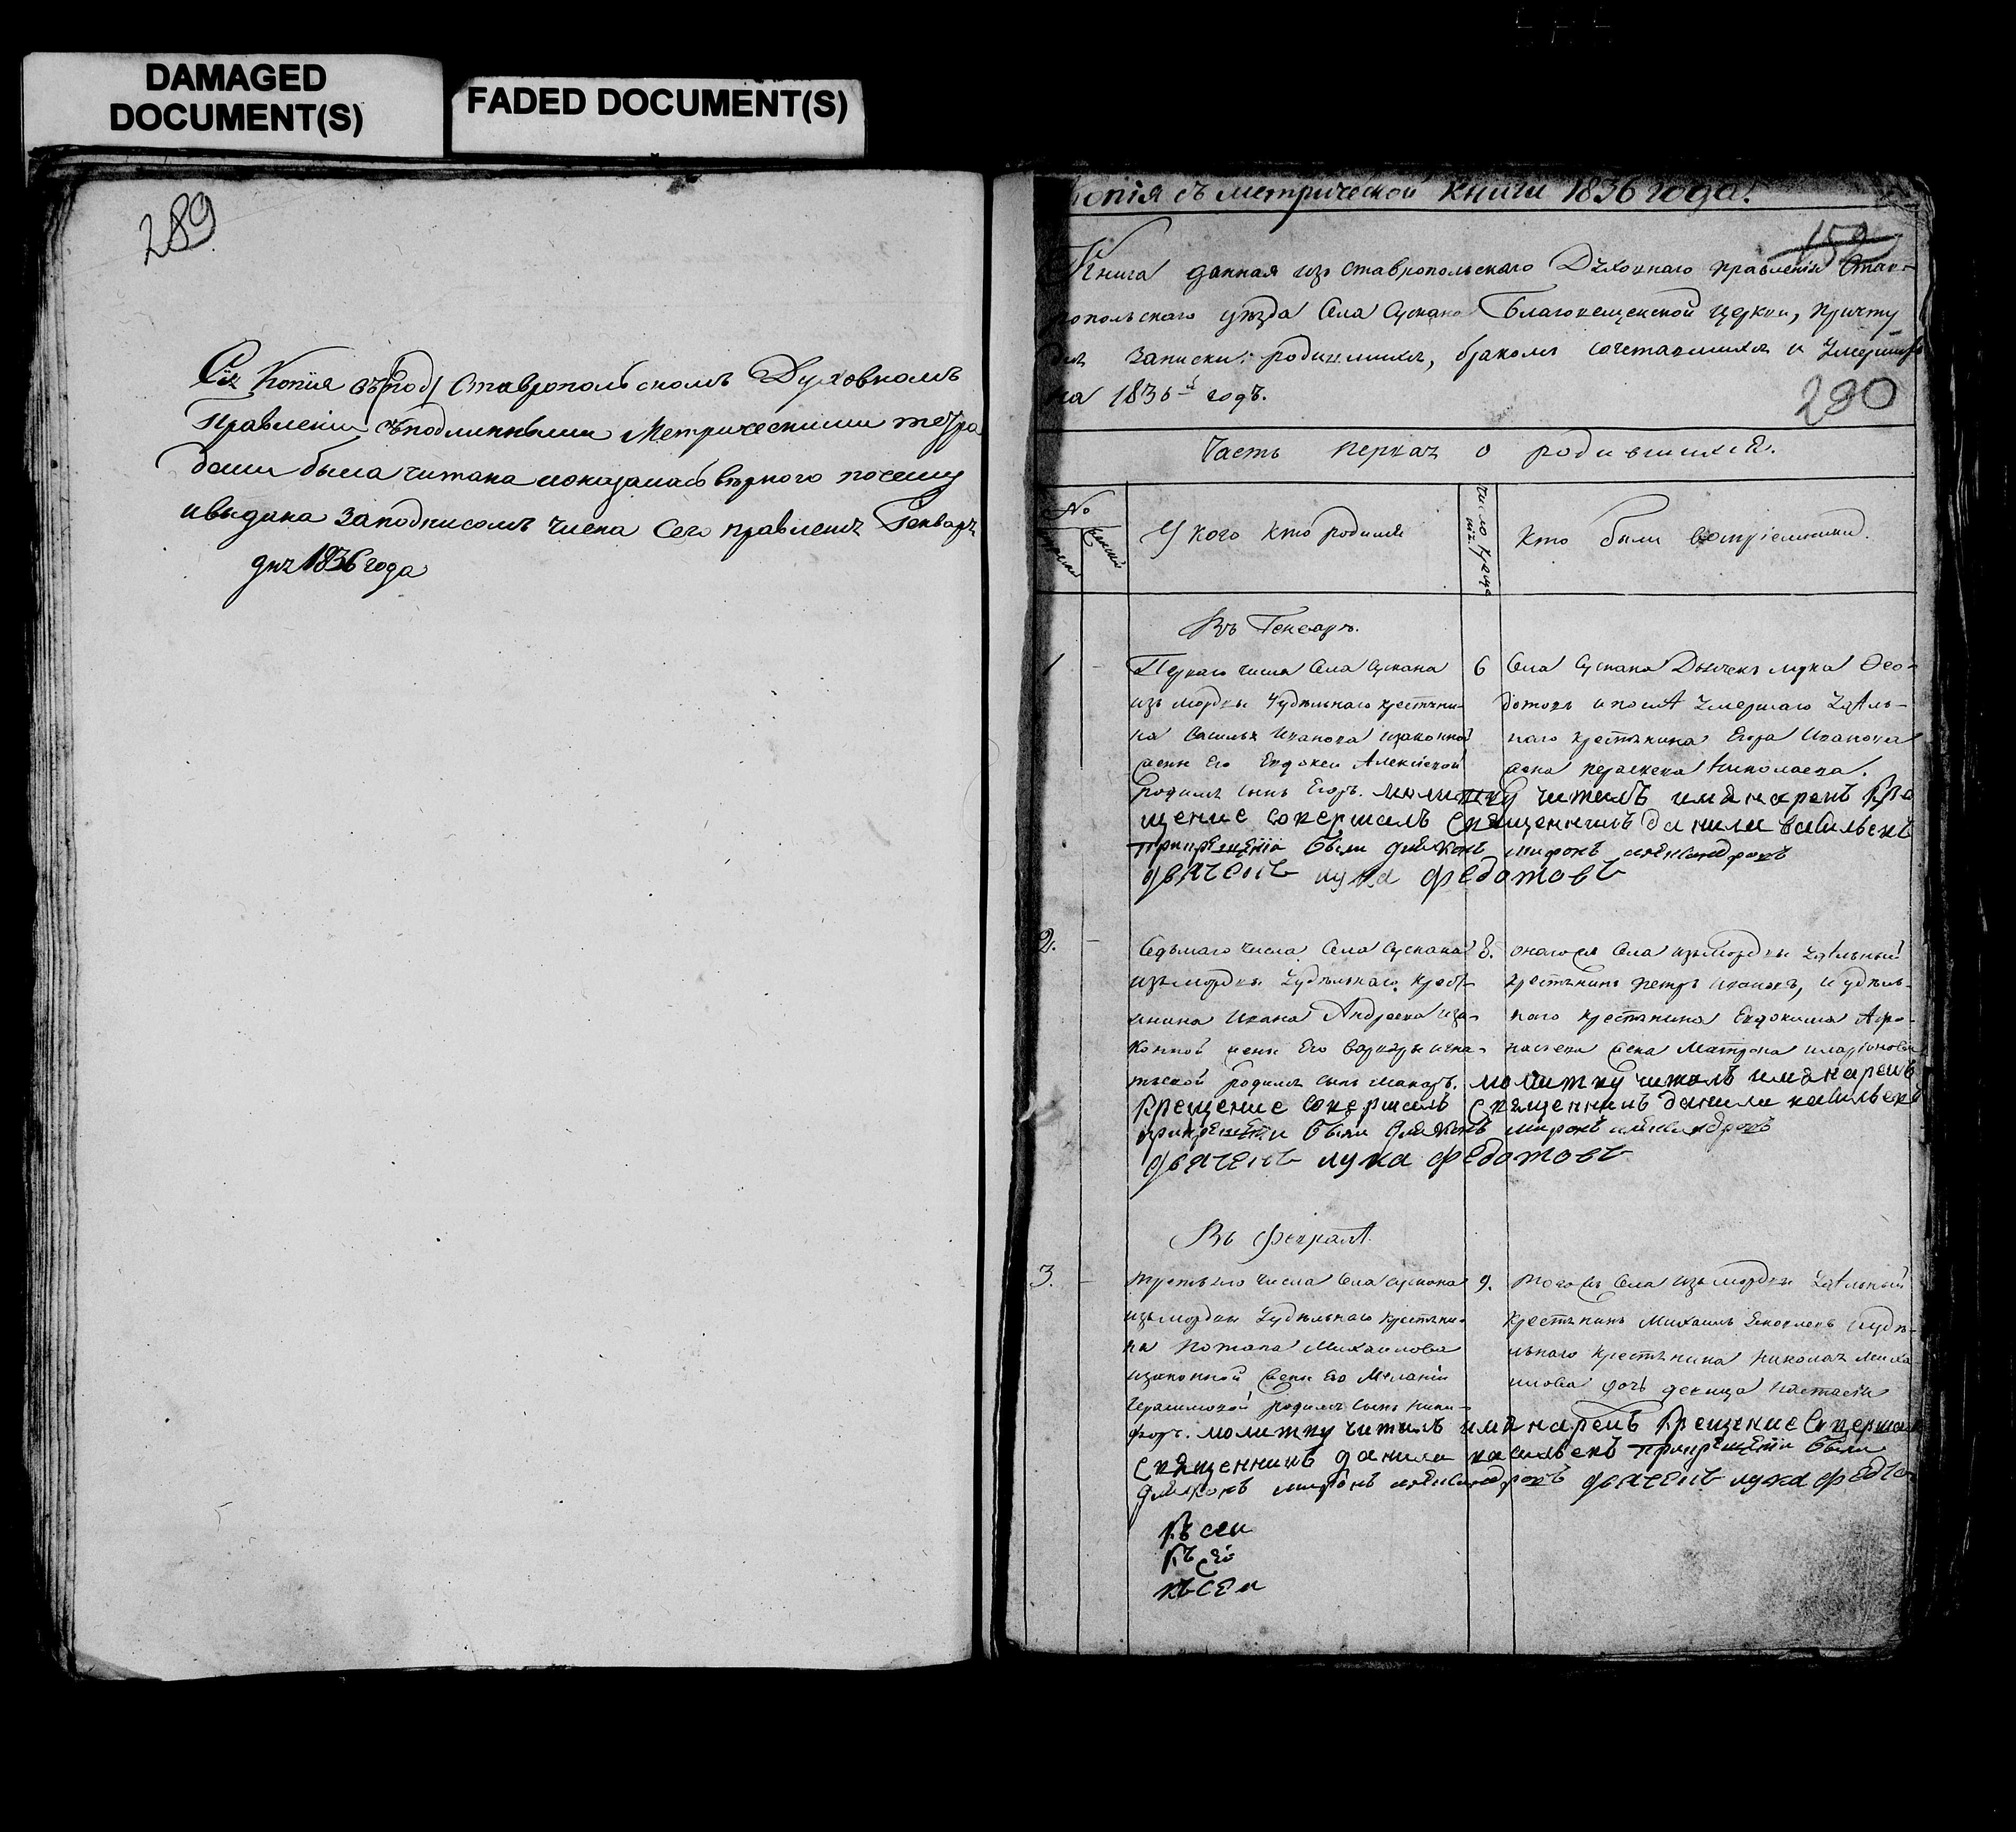 DAMAGED
DOCUMENT(S)
FADED DOCUMENT(S)
289
Сія Копїя въ Ставропольскомъ Духовномъ
Правленіи съ подлинными Метрическими тетра
дами была читана и оказалась верного почему
и выдана за подписомъ члена сего правленія Генваря
дня 1836 года
Копія съ метрической книги 1836 года.
152
Книга данная изъ Ставропольскаго Духовнаго правленія Став-
ропольскаго уѣзда Села Сускана Благовещенской церкви, причту
для записки родившихся, бракомъ сочетавшихся и умершихъ
на 1836й годъ.
290
Часть первая о родившихся.
№
мужеска
женска
У кого кто родился
Число креще
нія.
Кто были воспріемники.
Въ Генваръ.
1
Перваго числа Села Сускана
изъ мордвы Удѣльнаго крестьяни-
на Василья Иванова и законной
жены его Евдокеи Алексіевой
родился сынъ Егоръ. молитву читалъ имя нарекъ Кре
щение совершалъ священникъ данила васильевъ
при крещеніи были диаконъ миронъ александровъ
дьячекъ лука федотовъ
6
Села Сускана Дьячекъ лука Ѳео-
дотовъ и послѣ умершаго удѣль-
наго крестьянина Егора Иванова
жена параскева Николаева.
2.
Седьмаго числа Села Сускана
изъ мордвы Удѣльнаго крест-
янина Ивана Андреева и за-
конной жены его варвары игна-
тьевой родился сынъ макаръ. молитву читалъ имя нарекъ
Крещение совершалъ священникъ данила васильевъ
при крещеніи были диаконъ миронъ александровъ
дьячекъ лука федотовъ
8.
онагожъ Села изъ мордвы удѣльный
крестьянинъ петръ ивановъ, и удѣль-
наго крестьянина Евдокима Афо-
насьева жена Матрона иларионова
Въ Февралѣ.
3.
третьяго числа Села сускана
изъ мордвы Удѣльнаго крестьяни-
на Потапа Михаилова
и законной жены его Меланіи
Герасимовой родился сынъ Ники-
форъ. молитву читалъ имя нарекъ Крещение Совершалъ
священникъ данила васильевъ при крещеніи были
диаконъ миронъ александровъ дьячекъ лука федто
9.
тогожъ Села изъ мордвы удѣльный
крестьянинъ Михаилъ Яковлевъ и удѣ-
льнаго крестьянина николая миха-
илова дочь девица Настасія
Къ сей
Къ сей
къ сей